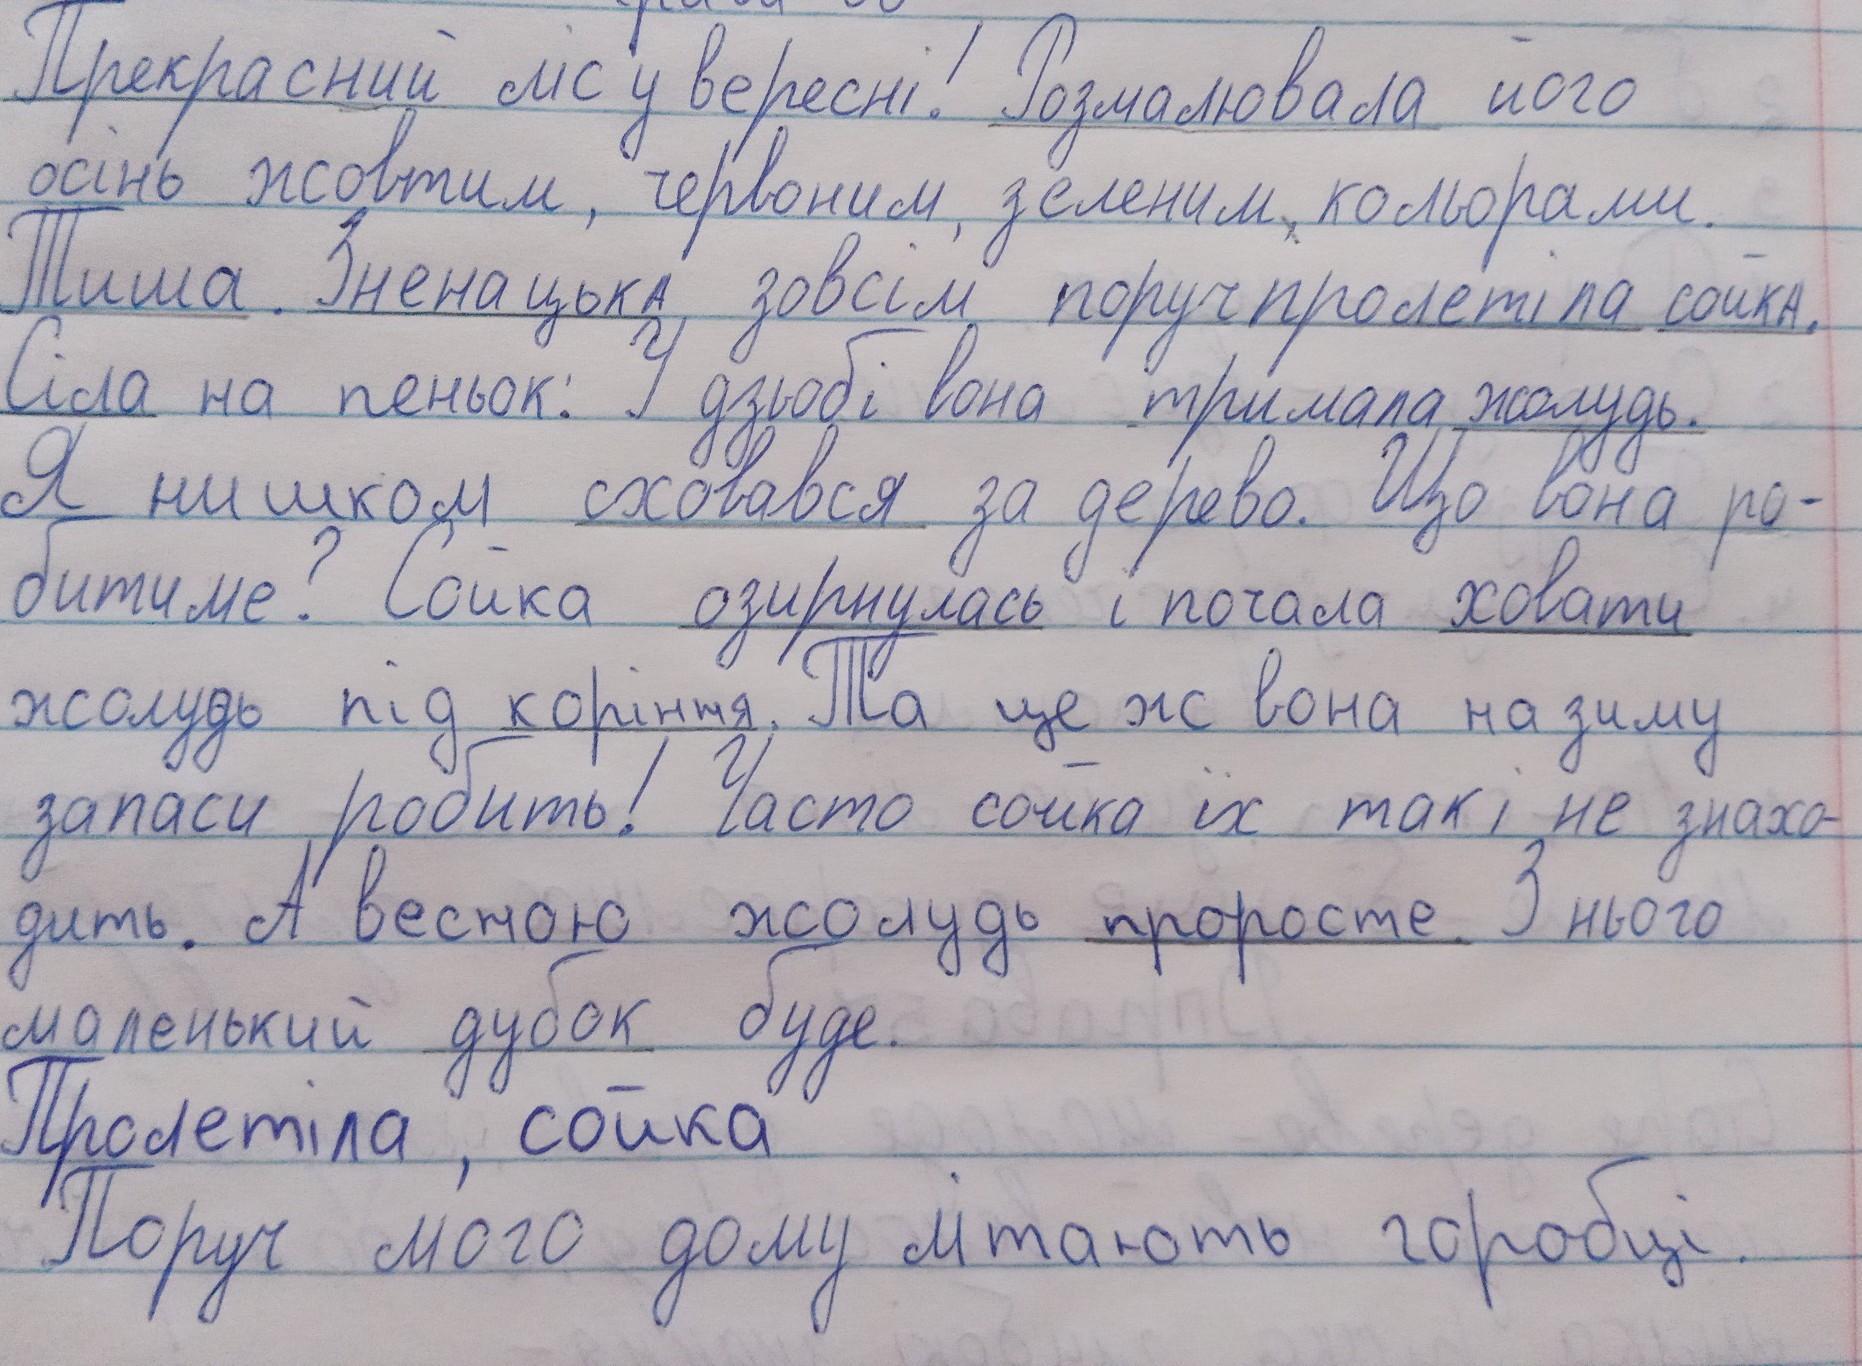 Прекрасний ліс у вересні! Розмалювала його
осінь жовтим, червоним, зеленим, кольорами.
Тиша. Зненацька зовсім поруч пролетіла сойка.
Сіла на пеньок. У дзьобі вона тримала жолудь.
Я нишком сховався за дерево. Що вона ро-
битиме? Сойка озирнулась і почала ховати
жолудь під коріння. Та це ж вона на зиму
запаси робить! Часто сойка їх такі не знахо-
дить. А весною жолудь проросте. З нього
маленький дубок буде.
Пролетіла, сойка
Поруч мого дому літають горобці.